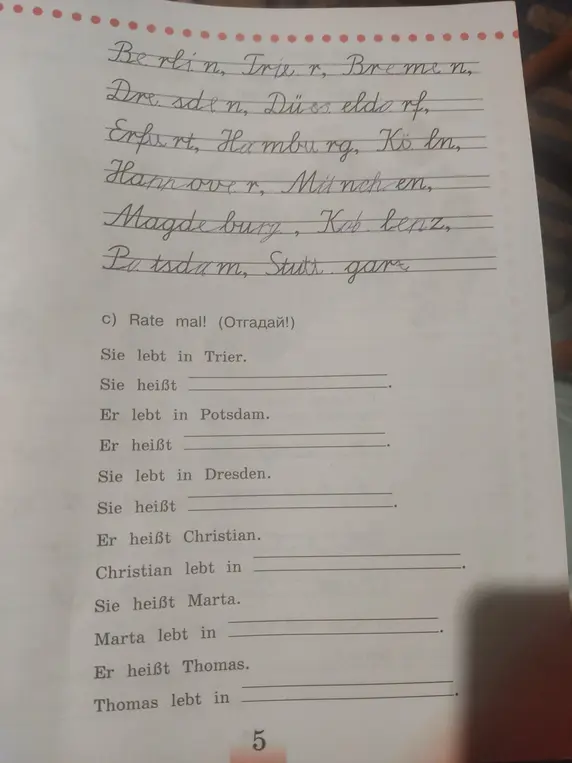 Berlin, Trier, Bremen,
Dresden, Düsseldorf,
Erfurt, Hamburg, Köln,
Hannover, München,
Magdeburg, Koblenz,
Potsdam, Stuttgart
c) Rate mal! (Отгадай!)
Sie lebt in Trier.
Sie heißt .
Er lebt in Potsdam.
Er heißt .
Sie lebt in Dresden.
Sie heißt .
Er heißt Christian.
Christian lebt in .
Sie heißt Marta.
Marta lebt in .
Er heißt Thomas.
Thomas lebt in .
5